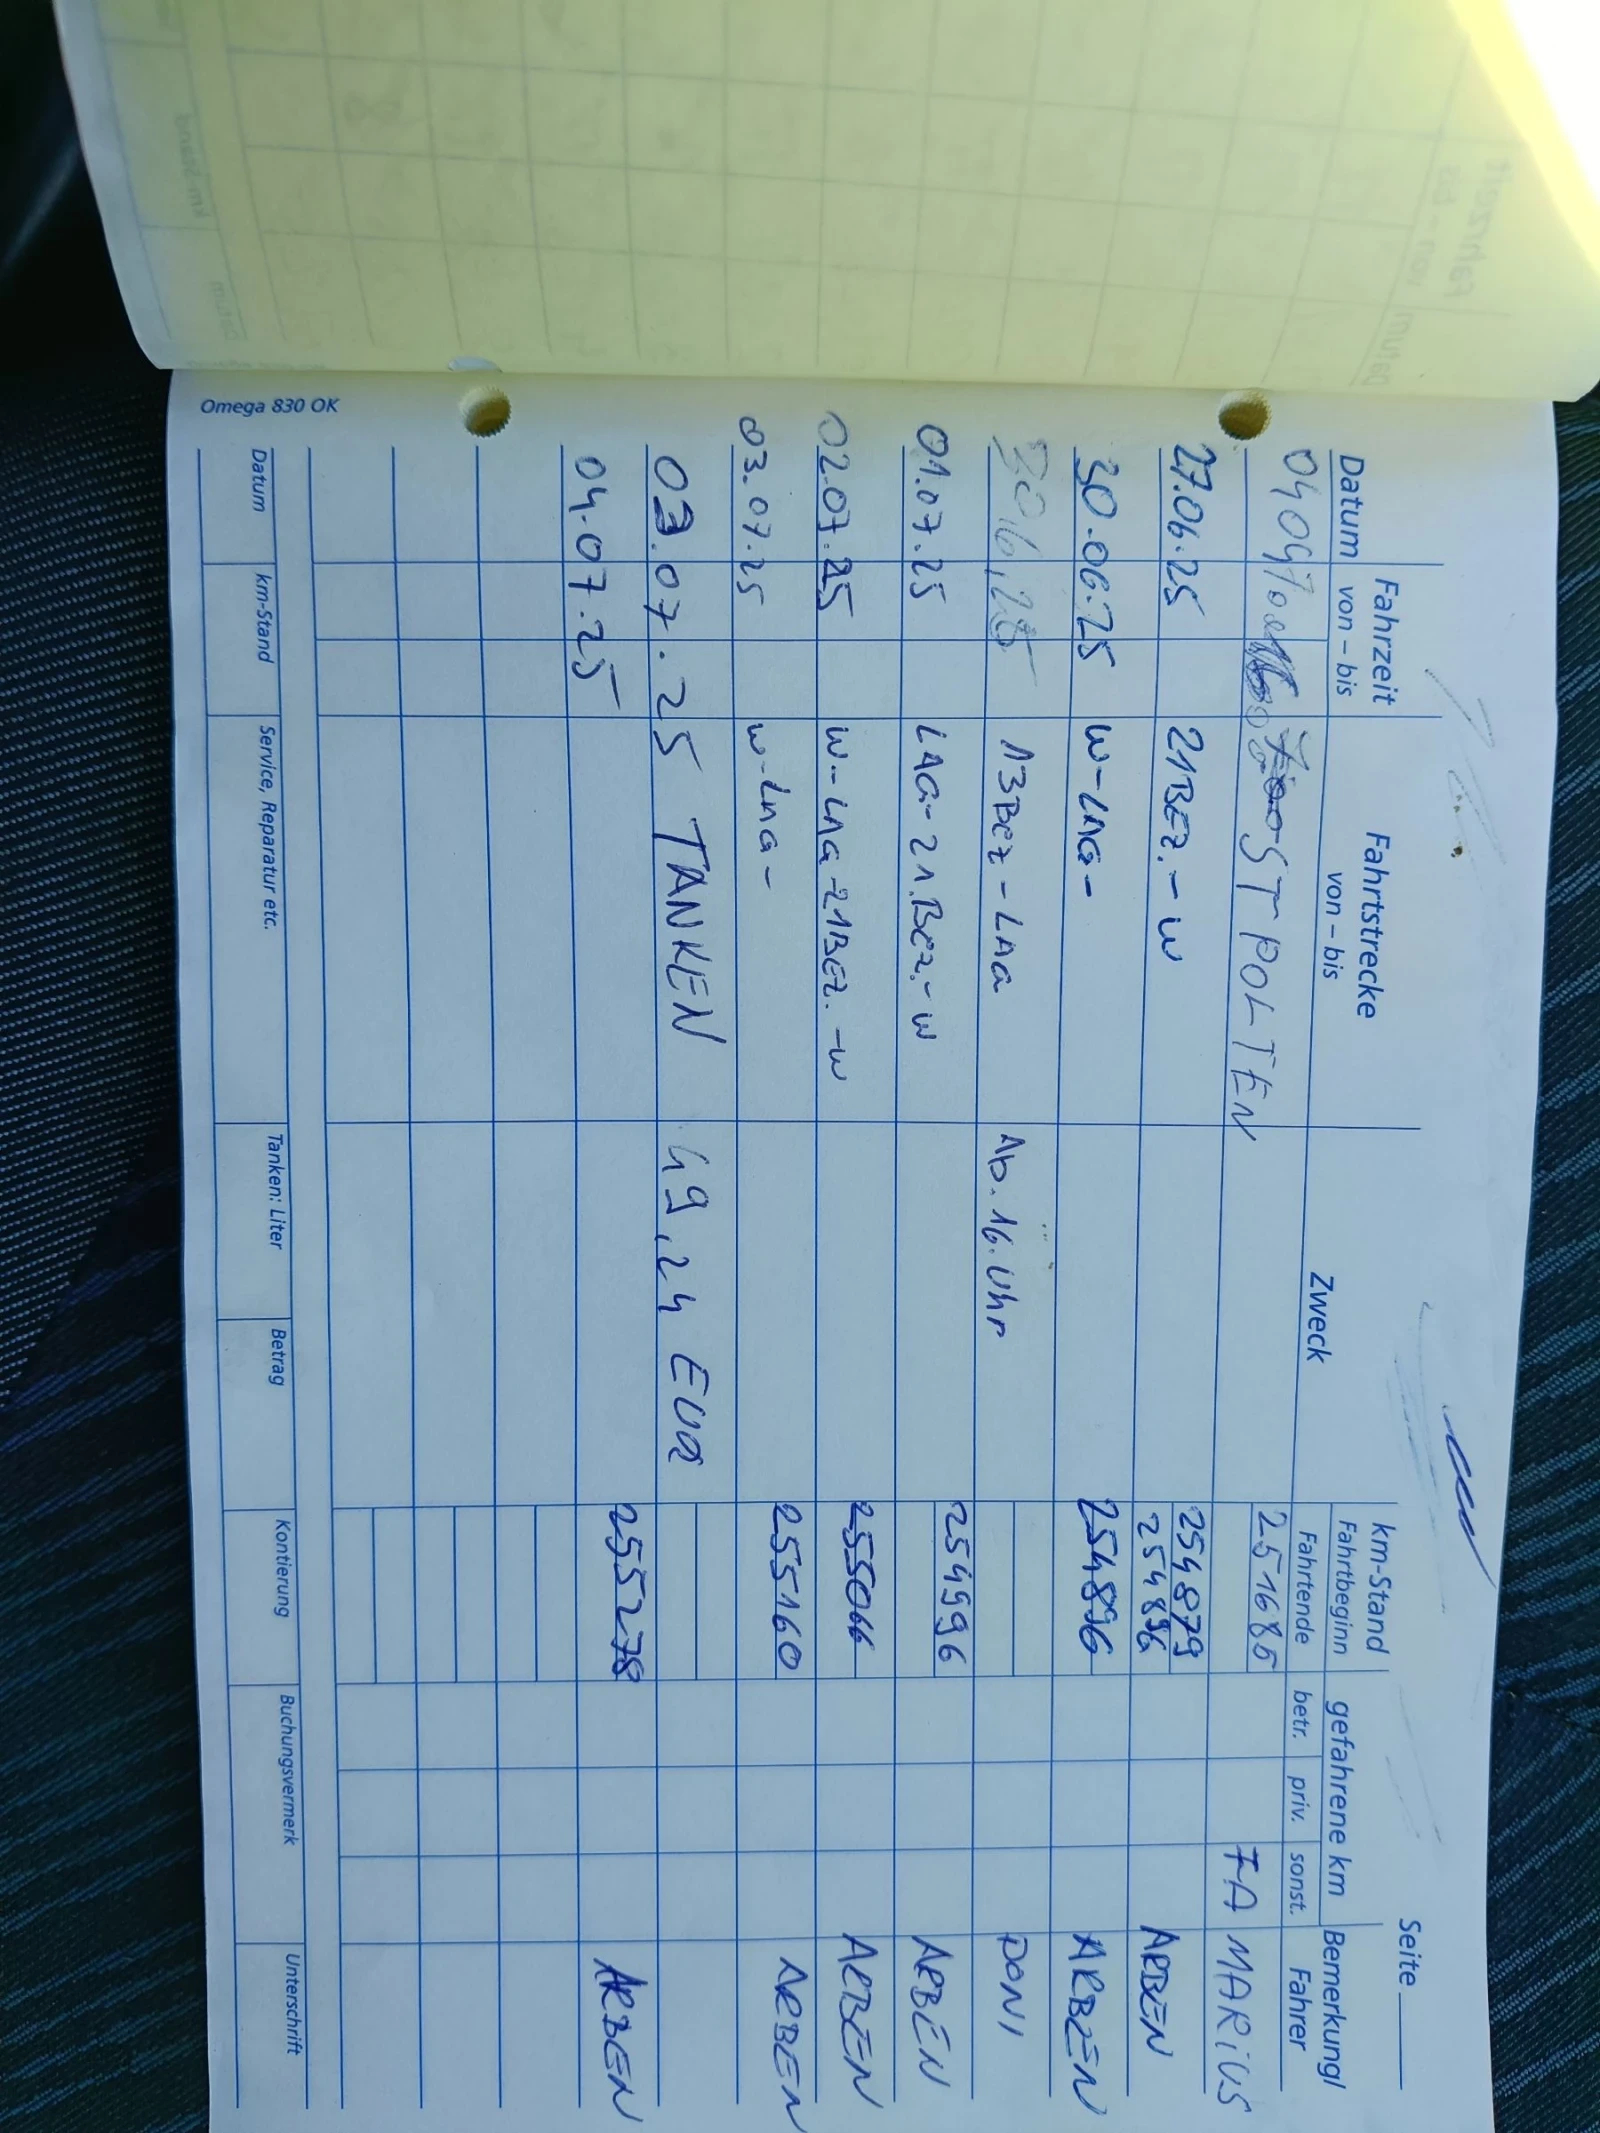 Seite
Datum Fahrzeit von – bis Fahrtstrecke von – bis Zweck km-Stand Fahrtbeginn Fahrtende gefahrene km betr. priv. sonst. Bemerkung/ Fahrer
ST POLTEN 251685 FA MARIUS
27.06.25 21BEZ.-W 254879 254896 ARBEN
30.06.25 W-LAA- 254896 ARBEN
13BEZ-LAA Ab.16.Uhr DONI
01.07.25 LAA-21.BEZ.-W 254996 ARBEN
02.07.25 W-LAA-21BEZ.-W 255066 ARBEN
03.07.25 W-LAA- 255160 ARBEN
03.07.25 TANKEN 49,24 EUR
04.07.25 255278 ARBEN
Datum km-Stand Service, Reparatur etc. Tanken: Liter Betrag Kontierung Buchungsvermerk Unterschrift
Omega 830 OK